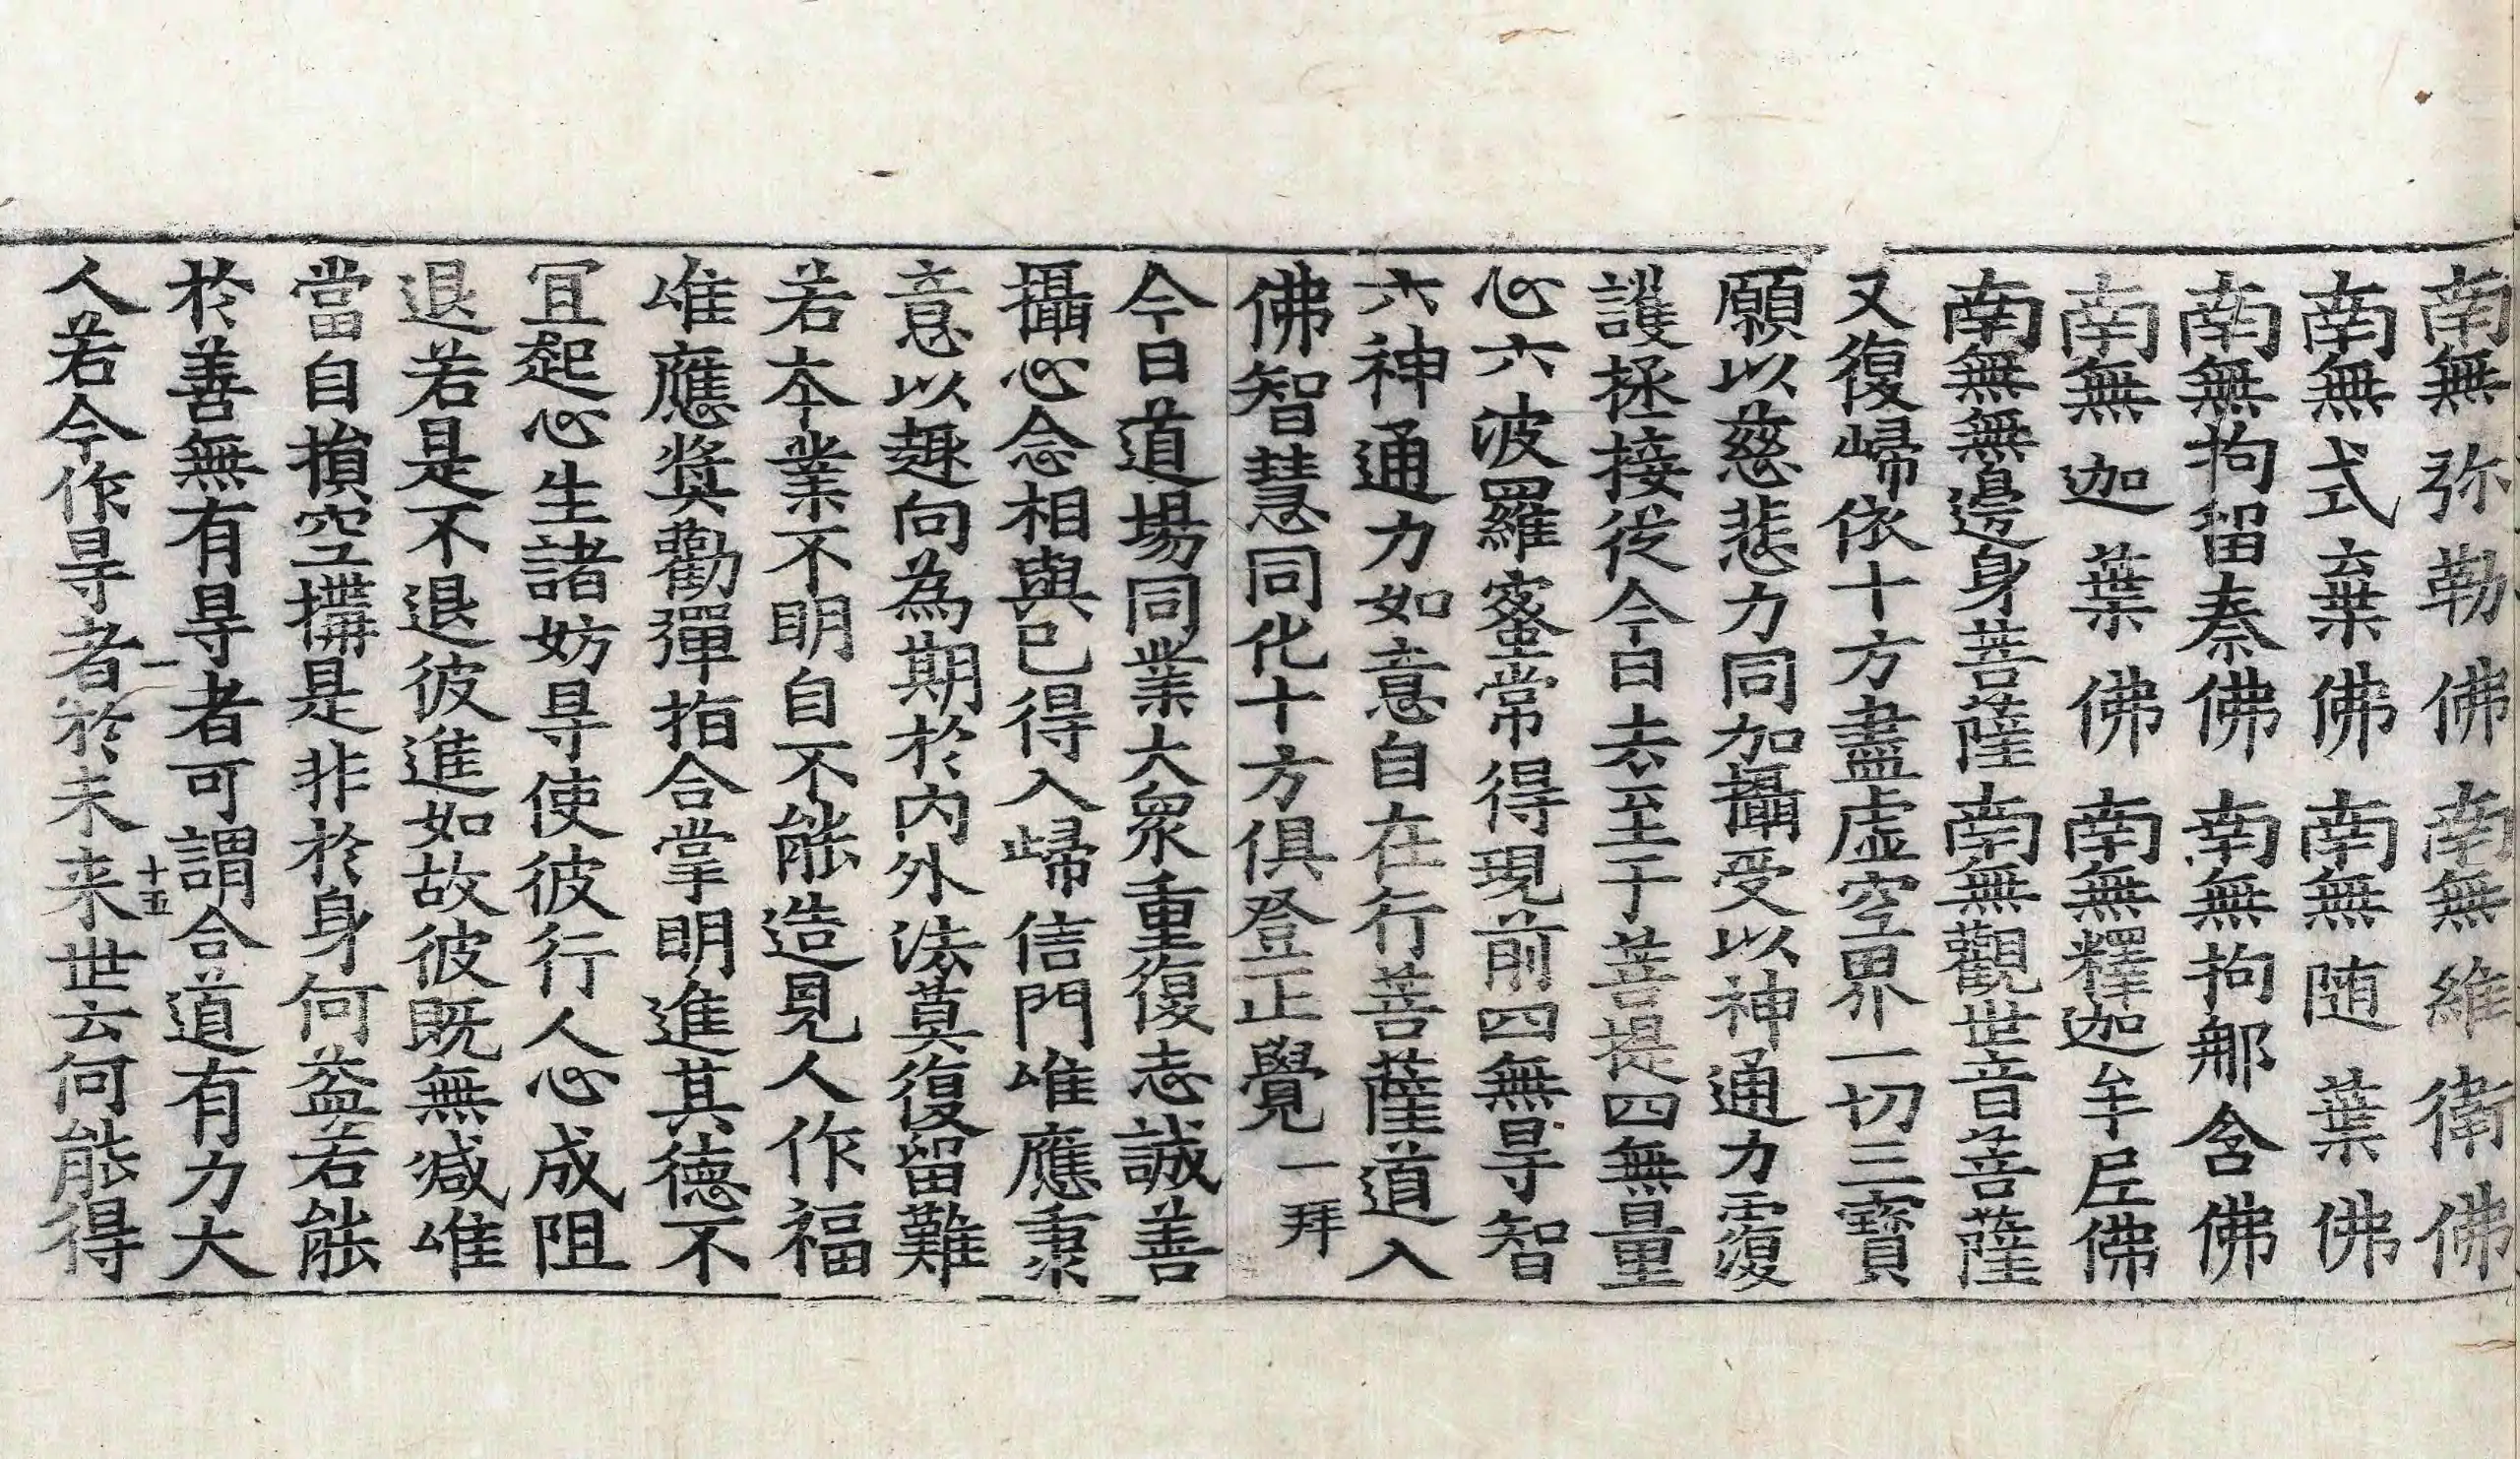 南無弥勒佛南無維衛佛
南無式棄佛南無随葉佛
南無拘留秦佛南無拘那含佛
南無迦葉佛南無釋迦牟尼佛
南無無邊身菩薩南無觀世音菩薩
又復歸依十方盡虛空界一切三寶
願以慈悲力同加攝受以神通力覆
護拯接從今日去至于菩提四無量
心六波羅蜜常得現前四無㝵智
六神通力如意自在行菩薩道入
佛智慧同化十方俱登正覺一拜
今日道場同業大衆重復志誠善
攝心念相與已得入歸信門唯應秉
意以趣向為期於內外法莫復留難
若夲業不明自不能造見人作福
唯應獎勸彈指合掌明進其德不
冝起心生諸妨㝵使彼行人心成阻
退若是不退彼進如故彼既無減唯
當自損空搆是非於身何益若能
於善無有㝵者可謂合道有力大
一 十五
人若今作㝵者於未来世云何能得